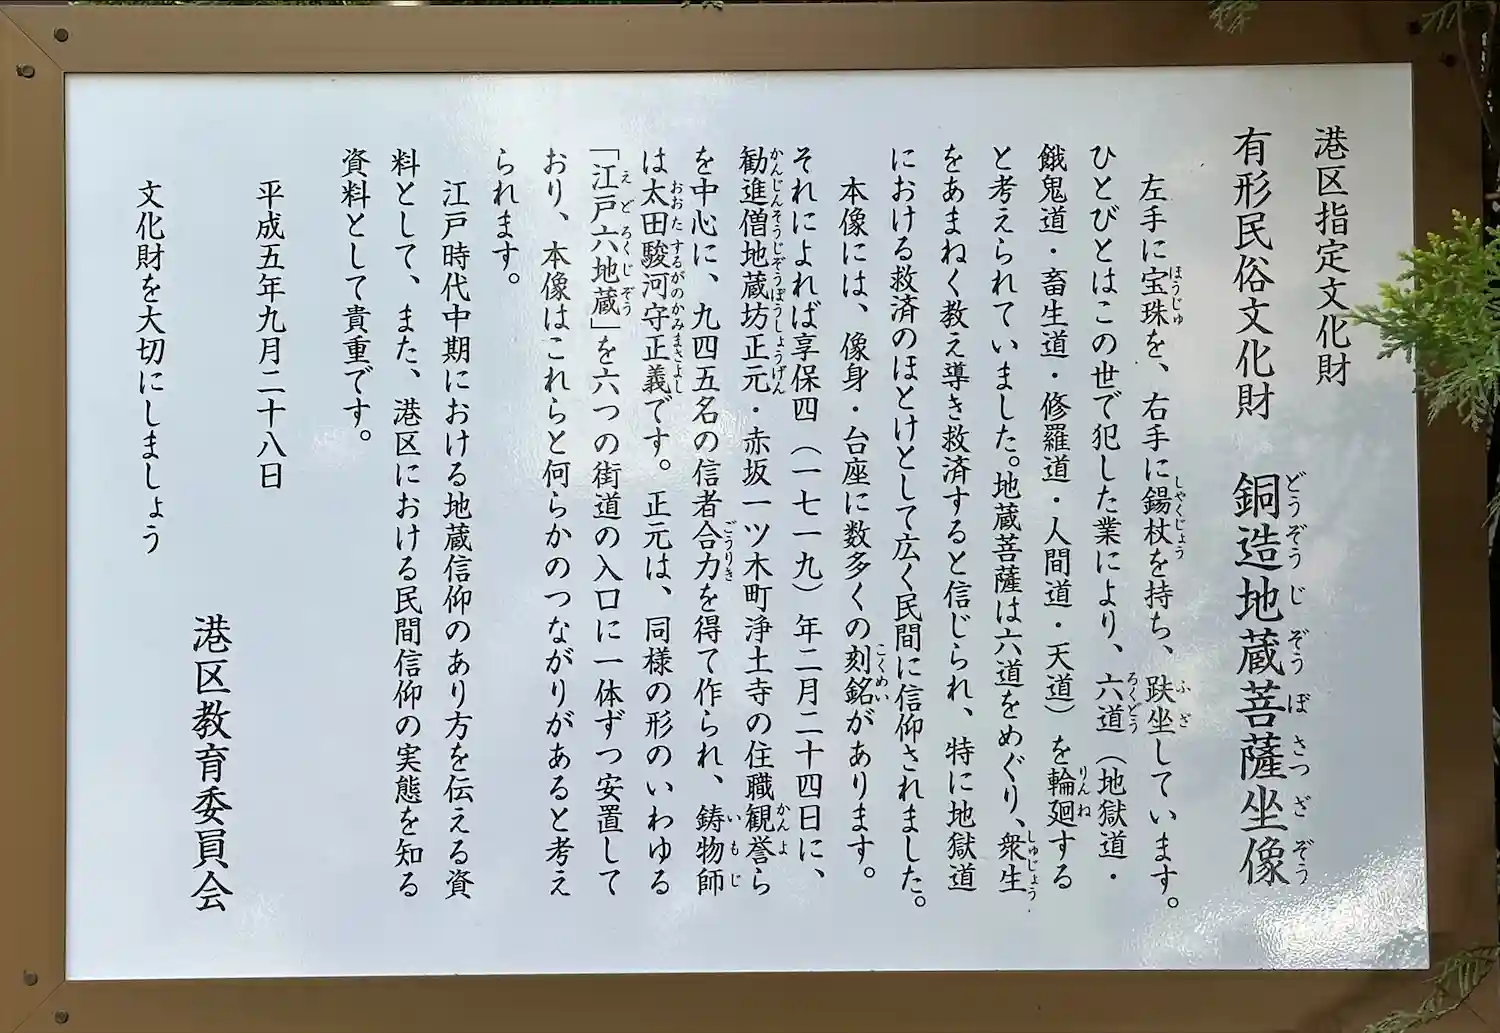 港区指定文化財
有形民俗文化財　銅造地蔵菩薩坐像
どうぞうじぞうぼさつざぞう
左手に宝珠を、右手に錫杖を持ち、趺坐しています。
ほうじゅ　しゃくじょう　ふざ
ひとびとはこの世で犯した業により、六道（地獄道・
ろくどう
餓鬼道・畜生道・修羅道・人間道・天道）を輪廻する
りんね
と考えられていました。地蔵菩薩は六道をめぐり、衆生
しゅじょう
をあまねく教え導き救済すると信じられ、特に地獄道
における救済のほとけとして広く民間に信仰されました。
本像には、像身・台座に数多くの刻銘があります。
こくめい
それによれば享保四（一七一九）年二月二十四日に、
勧進僧地蔵坊正元・赤坂一ツ木町浄土寺の住職観誉ら
かんじんそうじぞうぼうしょうげん　かんよ
を中心に、九四五名の信者合力を得て作られ、鋳物師
ごうりき　いもじ
は太田駿河守正義です。正元は、同様の形のいわゆる
おおたするがのかみまさよし
「江戸六地蔵」を六つの街道の入口に一体ずつ安置して
えどろくじぞう
おり、本像はこれらと何らかのつながりがあると考え
られます。
江戸時代中期における地蔵信仰のあり方を伝える資
料として、また、港区における民間信仰の実態を知る
資料として貴重です。
平成五年九月二十八日
港区教育委員会
文化財を大切にしましょう